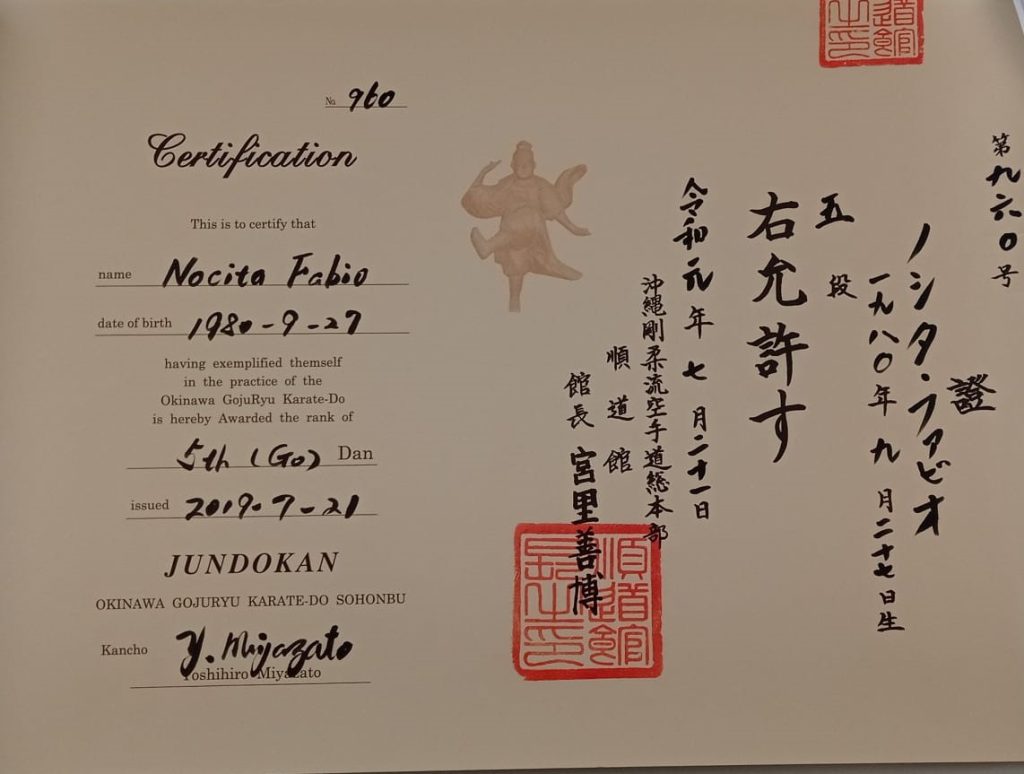 № 960
Certification
This is to certify that
name Nocita Fabio
date of birth 1980-9-27
having exemplified themself
in the practice of the
Okinawa GojuRyu Karate-Do
is hereby Awarded the rank of
5th (Go) Dan
issued 2019-7-21
JUNDOKAN
OKINAWA GOJURYU KARATE-DO SOHONBU
Kancho Y. Miyazato
Yoshihiro Miyazato
第九六〇号
證
ノシタ・ファビオ
一九八〇年九月二十七日生
五段
右允許す
令和元年七月二十一日
沖縄剛柔流空手道総本部
順道館
館長 宮里善博
順道館
長之印
道館
之印